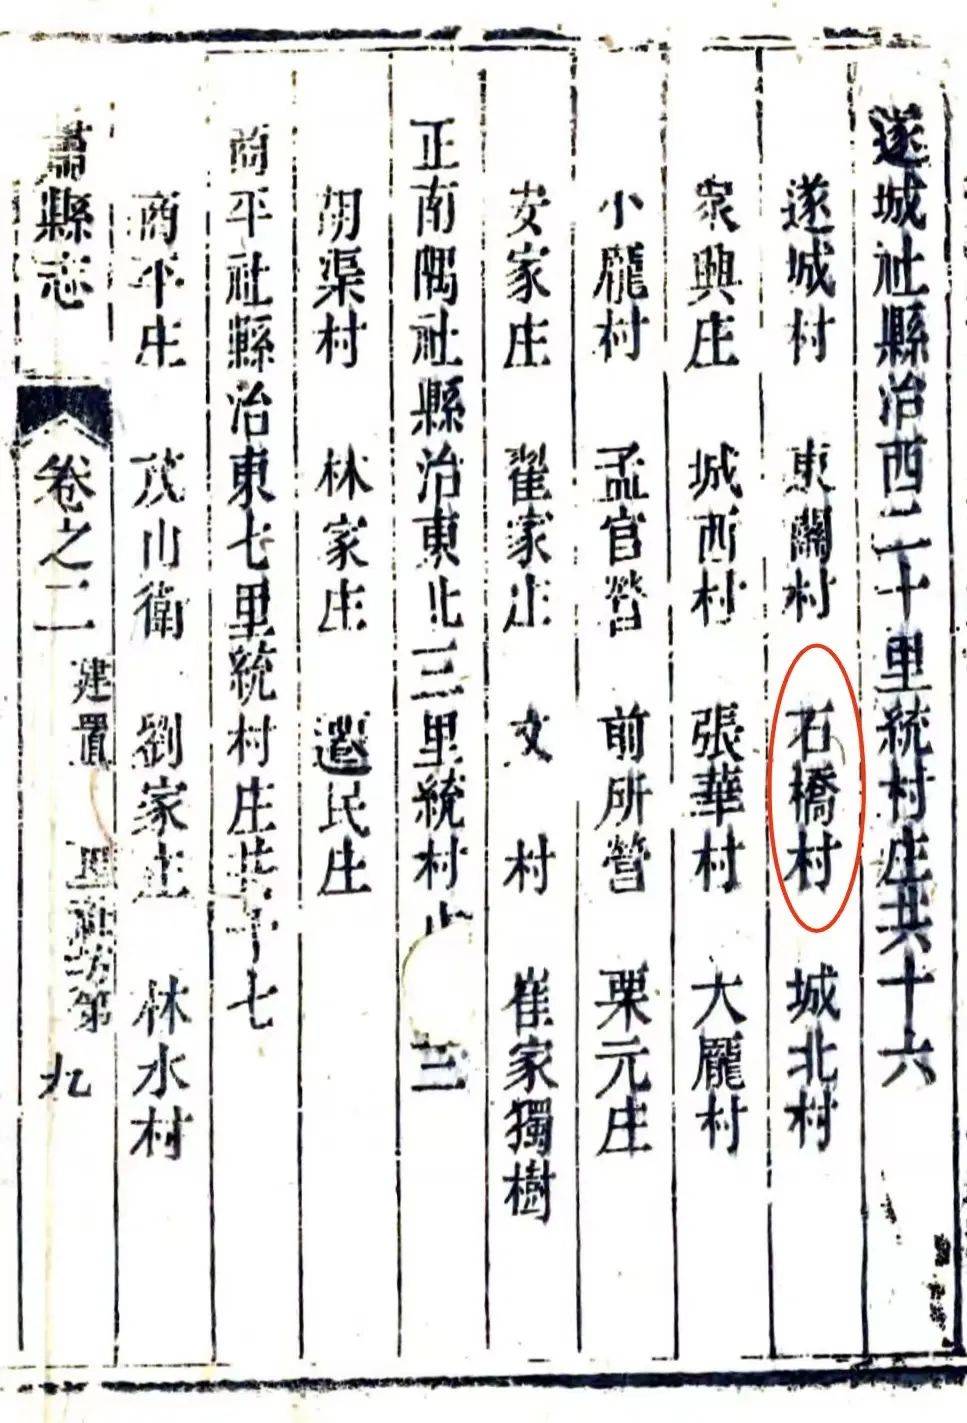 遂城社縣治西二十里統村庄共十六
遂城村 東關村 石橋村 城北村
衆興庄 城西村 張華村 大龐村
小龐村 孟官營 前所營 栗元庄
安家庄 翟家庄 文村 崔家獨樹
正南隅社縣治東北三里統村 三
胡渠村 林家庄 遷民庄
商平社縣治東七里統村庄共十七
商平庄 茂山衛 劉家庄 林水村
肅縣志 卷之二 建置 里社坊第 九